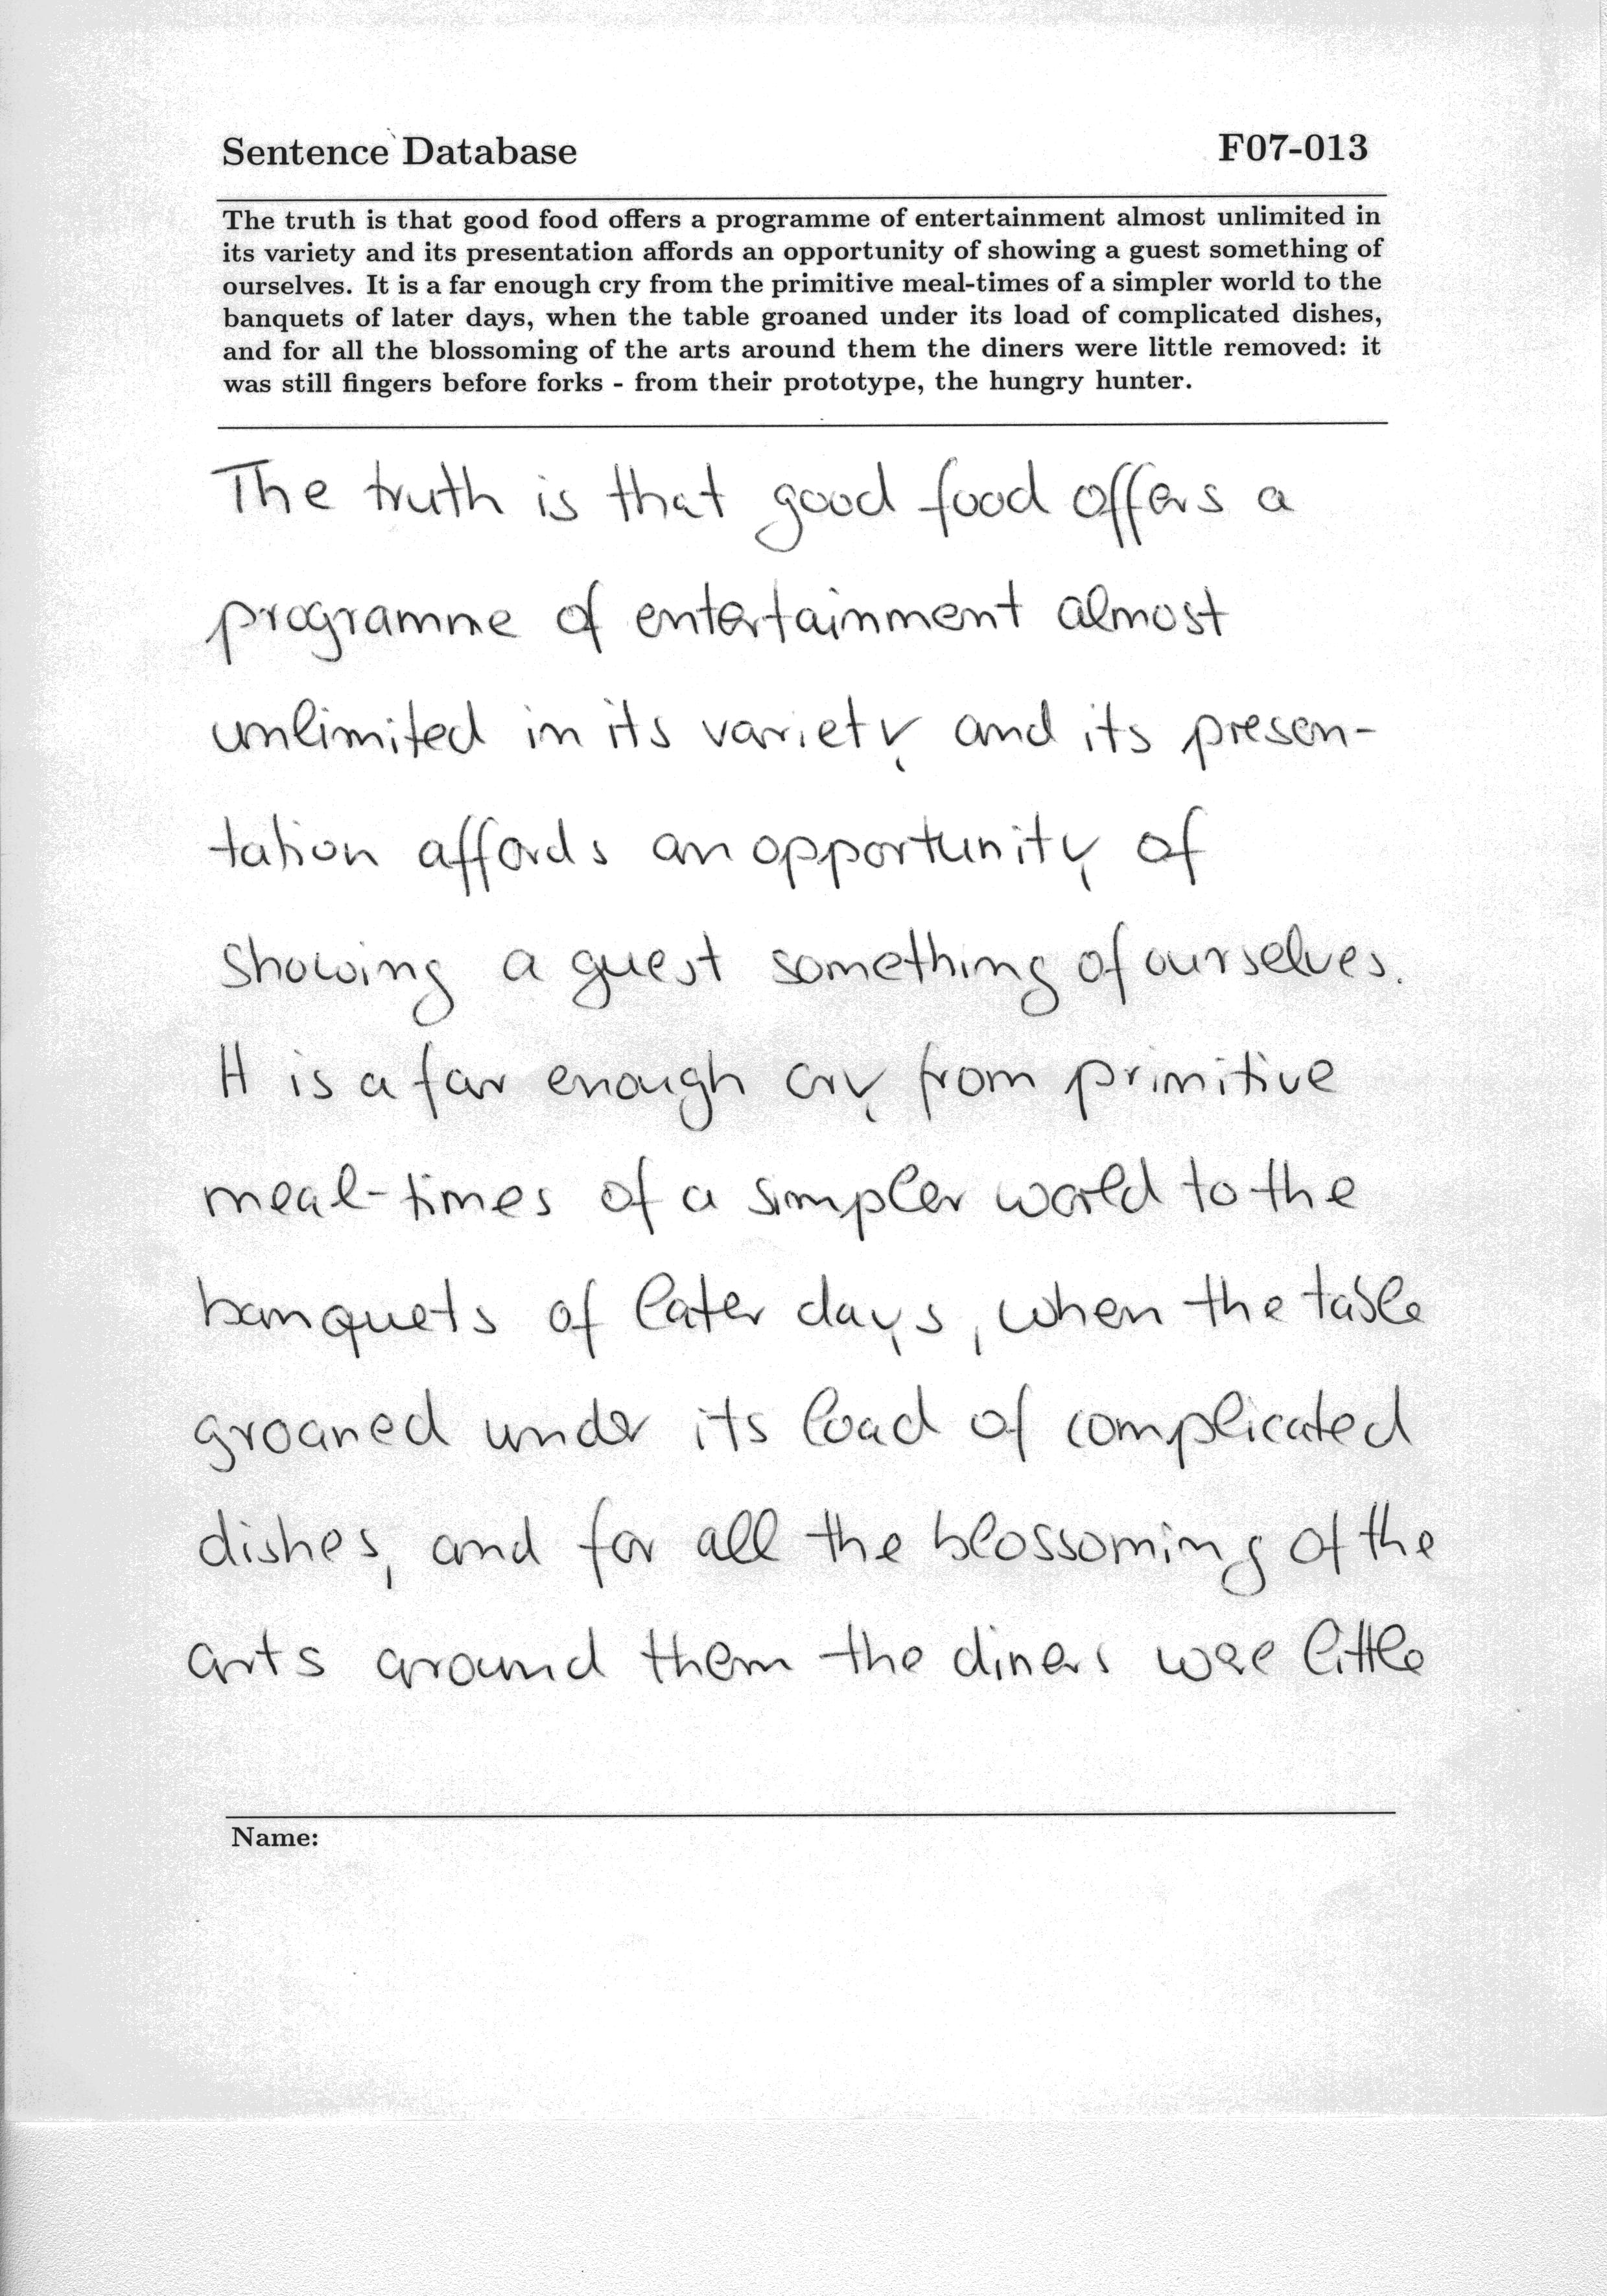 Sentence Database
F07-013
The truth is that good food offers a programme of entertainment almost unlimited in
its variety and its presentation affords an opportunity of showing a guest something of
ourselves. It is a far enough cry from the primitive meal-times of a simpler world to the
banquets of later days, when the table groaned under its load of complicated dishes,
and for all the blossoming of the arts around them the diners were little removed: it
was still fingers before forks - from their prototype, the hungry hunter.
The truth is that good food offers a
programme of entertainment almost
unlimited in its variety and its presen-
tation affords an opportunity of
showing a guest something of ourselves.
It is a far enough cry from primitive
meal-times of a simpler world to the
banquets of later days, when the table
groaned under its load of complicated
dishes, and for all the blossoming of the
arts around them the diners were little
Name: